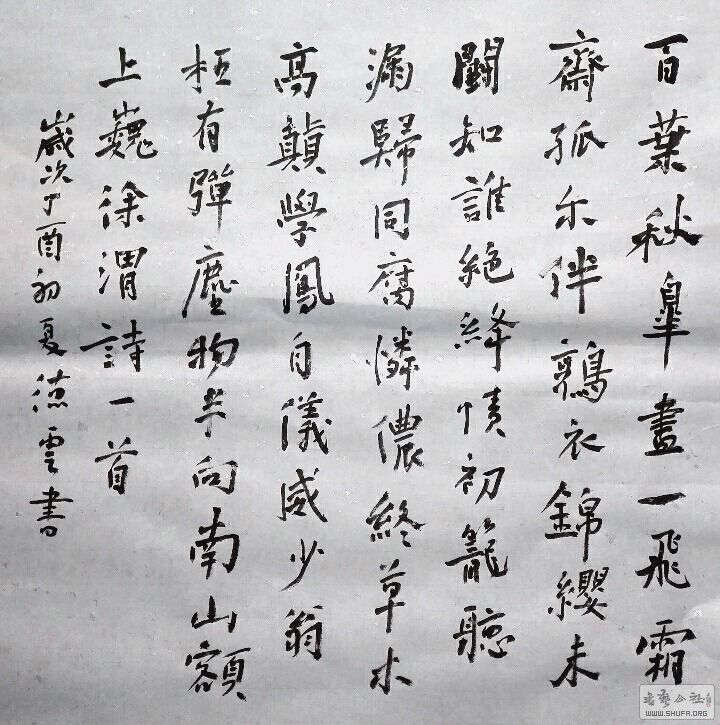 百葉秋皐晝一飛霜
齋孤尓伴鶉衣錦纓未
鬭知誰絕絳幘初籠聽
漏歸同腐憐儂終草木
高顛學鳳自儀威少翁
枉有彈塵物芋向南山額
上巍徐渭詩一首
歲次丁酉初夏德雲書
书艺公社
WWW.SHUFA.ORG